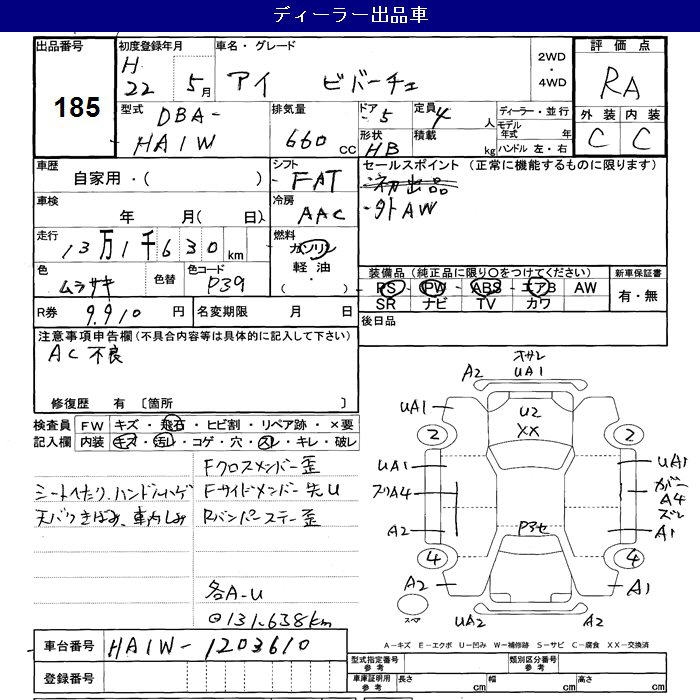 ディーラー出品車
出品番号
185
初度登録年月
H
22 5月
車名・グレード
アイ ビバーチェ
2WD
・
4WD
評価点
RA
外装 内装
C C
型式
DBA-
HA1W
排気量
660 cc
ドア 5
形状 HB
定員 4 人
積載 kg
ディーラー・並行
モデル年式 年
ハンドル 左・右
車歴
自家用・( )
シフト
FAT
セールスポイント (正常に機能するものに限ります)
初出品
・外AW
車検
年 月( 日)
冷房
AAC
走行
13万1千630km
燃料
ガソリン
軽油・
( )
色
ムラサキ
色替
色コード
P39
装備品(純正品に限り○をつけてください)
PS PW ABS エアB AW
SR ナビ TV カワ
新車保証書
有・無
R券 9,910 円
名変期限 月 日
後日品
注意事項申告欄(不具合内容等は具体的に記入して下さい)
AC不良
修復歴 有 〔箇所 〕
検査員 FW キズ・飛石・ヒビ割・リペア跡・×要
記入欄 内装 キズ・汚レ・コゲ・穴・スレ・キレ・破レ
Fクロスメンバー歪
シートヘたり、ハンドルハゲ
Fサイドメンバー先U
天バリきばみ、車内しみ
Rバンパーステー歪
各A-U
◎131,638km
オサレ
A2 UA1
UA1 A1
U2
XX
2 2
UA1 UA1
スリA4
ガバー
A4
ズレ
A2 A1
P3セ
4 4
A2 A1
スペア
UA2 A2
A-キズ E-エクボ U-凹み W-補修跡 S-サビ C-腐食 XX-交換済
車台番号 HA1W-1203610
登録番号
型式指定番号
参考
類別区分番号
参考
車庫証明用
参考
長さ cm 幅 cm 高さ cm